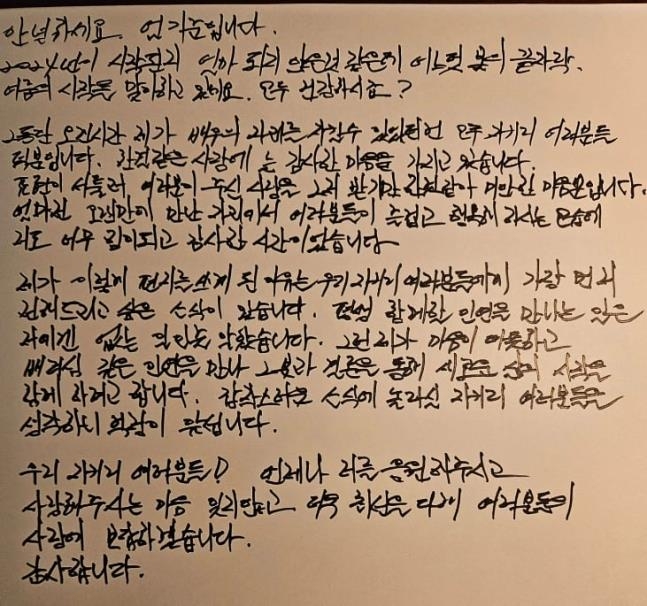 안녕하세요. 엄기준입니다.
2024년이 시작된지 얼마 되지 않은것 같은데 어느덧 봄의 끝자락.
여름의 시작을 맞이하고 있네요. 모두 건강하시죠?
그동안 오랜시간 제가 배우의 자리를 지킬수 있었던건 모두 지키리 여러분들
덕분입니다. 한결같은 사랑에 늘 감사한 마음을 가지고 있습니다.
표현이 서툴러, 여러분이 주신 사랑을 그저 받기만 한것같아 미안한 마음뿐입니다.
얼마전 오랜만에 만난 자리에서 여러분들이 즐겁고 행복해 하시는 모습에
저도 너무 힘이되고 감사한 시간이었습니다.
제가 이렇게 편지를 쓰게 된 이유는 우리 지키리 여러분들께 가장 먼저
전해드리고 싶은 소식이 있습니다. 평생 함께할 인연을 만나는 일은
저에겐 없는 일인줄 알았습니다. 그런 제가 마음이 따뜻하고
배려심 깊은 인연을 만나 그분과 결혼을 통해 새로운 삶의 시작을
함께 하려고 합니다. 갑작스러운 소식에 놀라실 지키리 여러분들을
생각하니 걱정이 앞섭니다.
우리 지키리 여러분들! 언제나 저를 응원해주시고
사랑해주시는 마음 잊지않고 더욱 최선을 다해 여러분들의
사랑에 보답하겠습니다.
감사합니다.